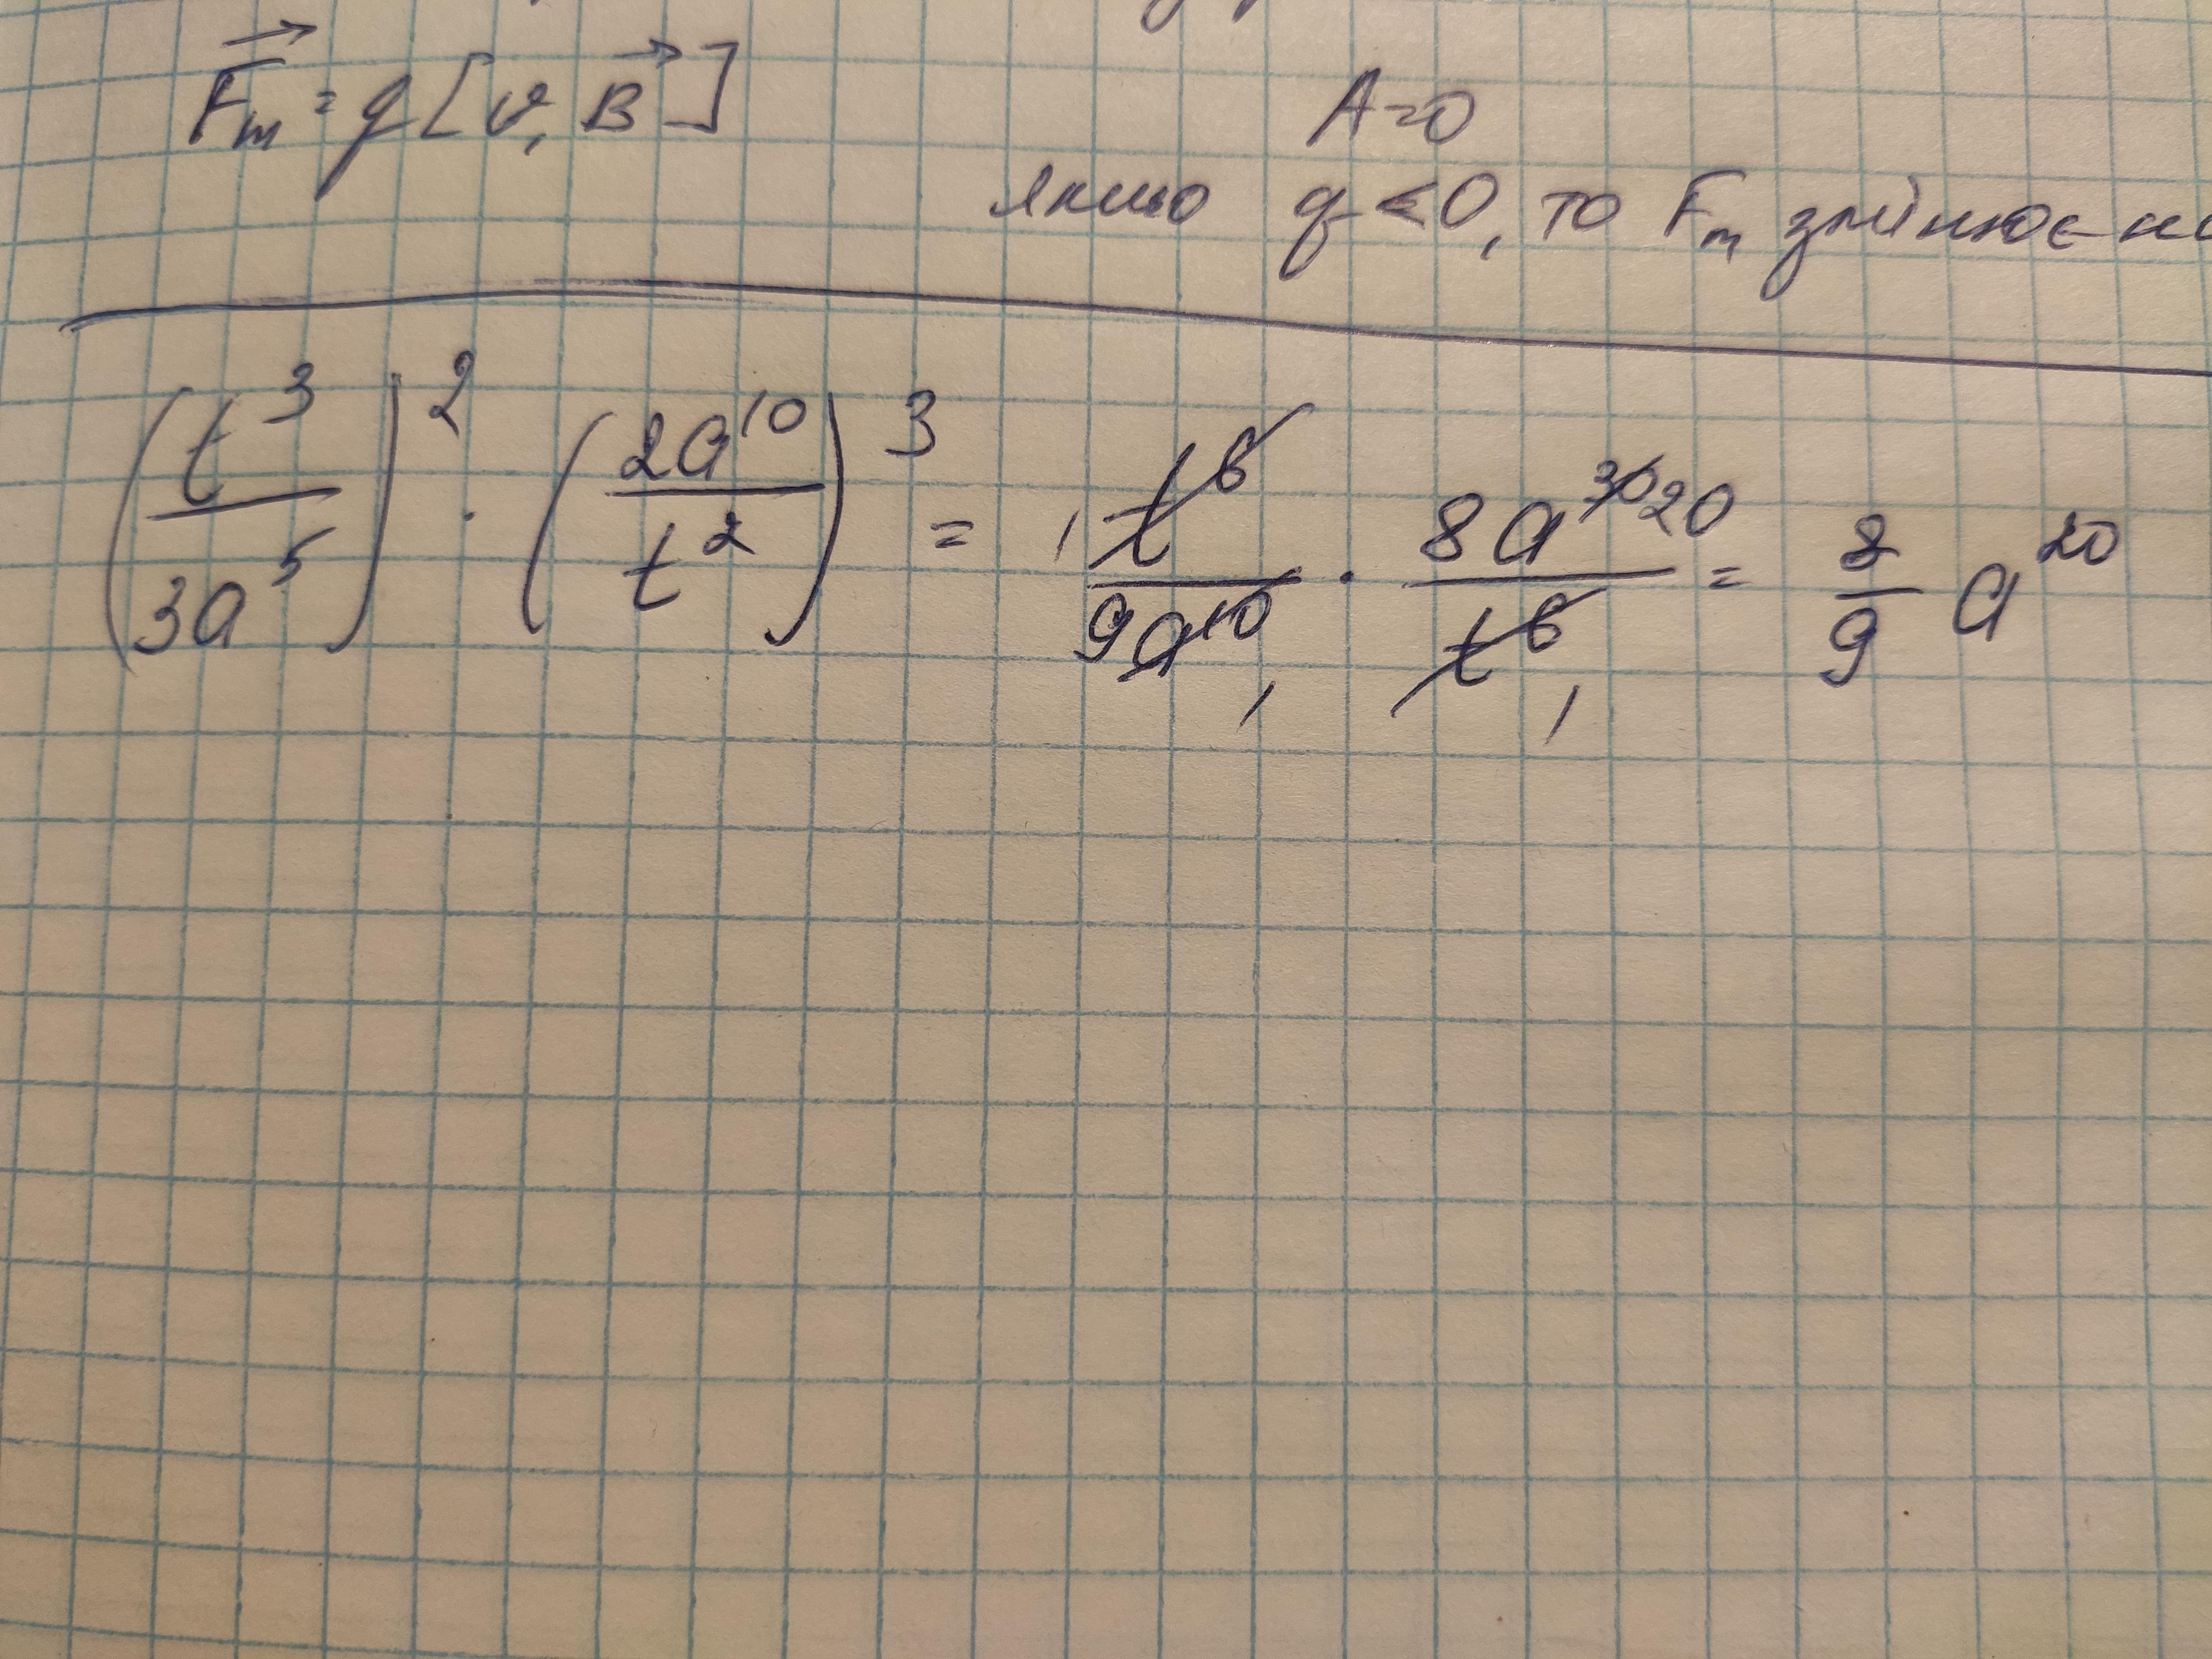 F⃗m = q[v, B⃗]
A=0
якщо q<0, то Fm змінює
(t³/3a⁵)² · (2a¹⁰/t²)³ = t⁶/9a¹⁰ · 8a³⁰ ²⁰/t⁶ = 8/9 a²⁰